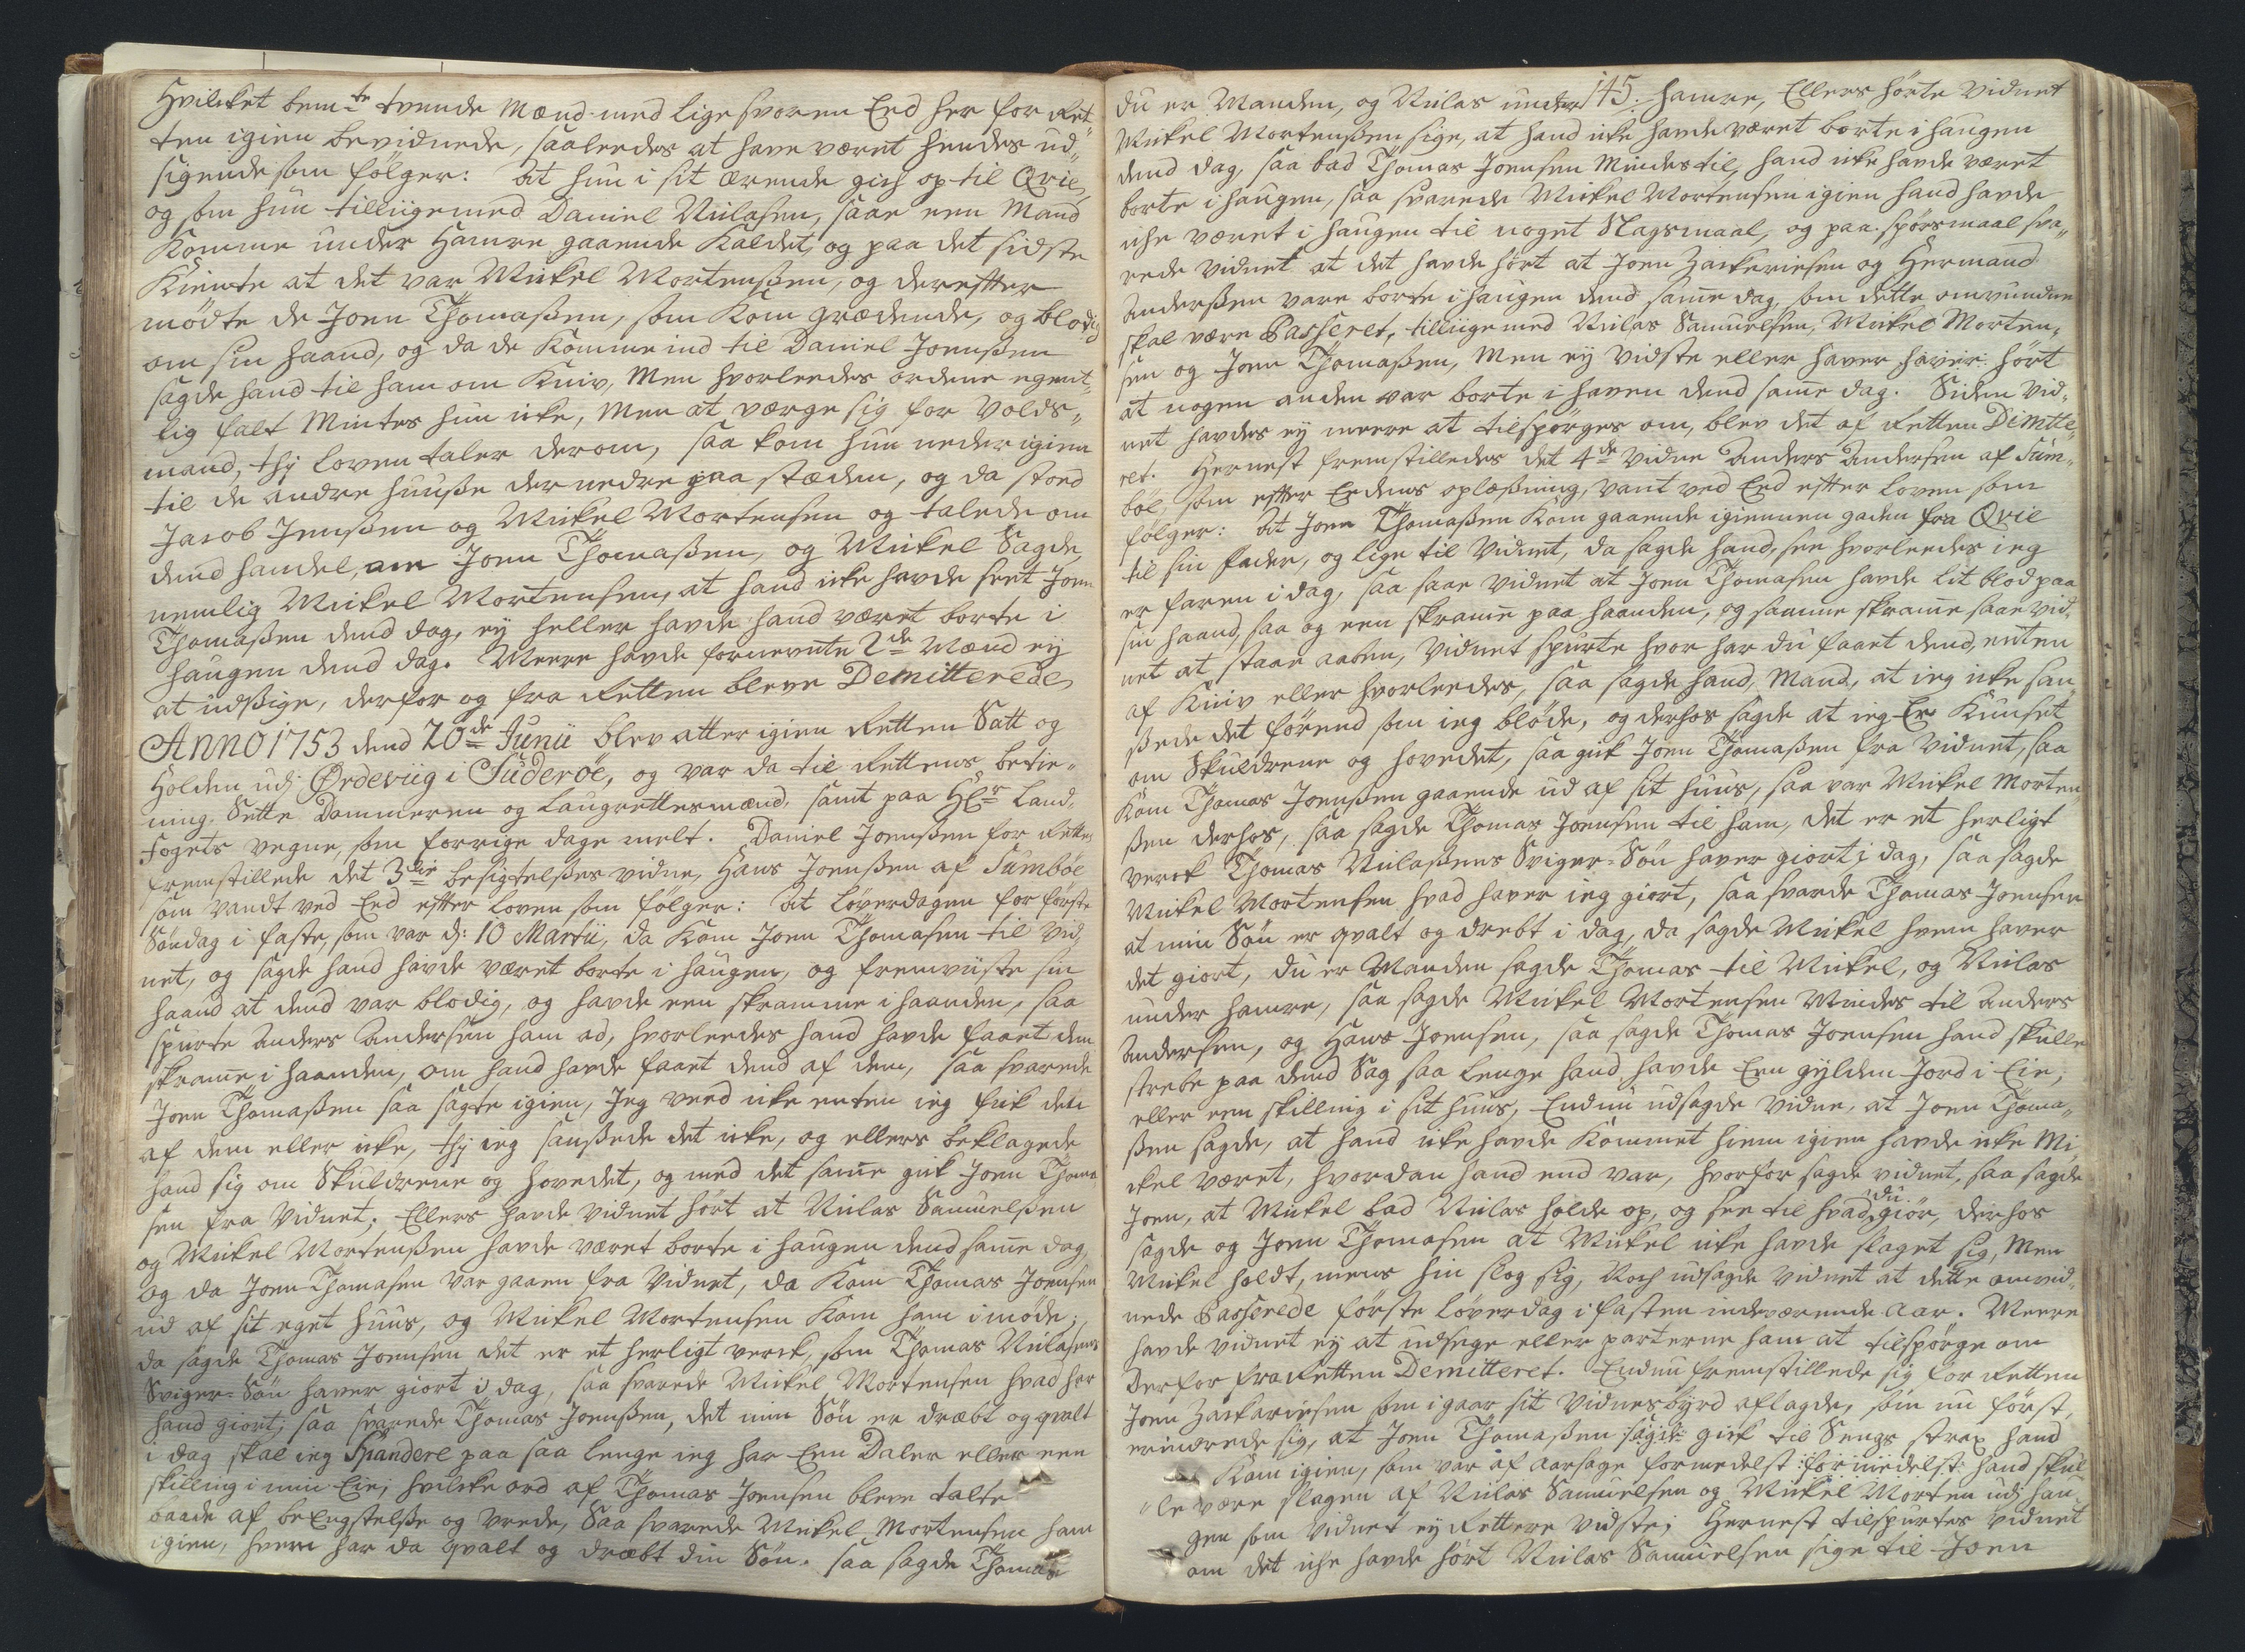 Hvilcket bemte tvende Mænd med lige svoren Eed her for Ret„
ten igien bevidnede, saaleedes at have været hendes ud„
sigende som følger: At hun i sit ærende gich op til Qvie,
og som hun tilliigemed Daniel Niclasen, saae een Mand
Komme under Hamre gaaende Kaldet, og paa det sidste
Kiente at det var Mickel Mortensßen, og derefter
mödte de Joen Thomasßen, som Kom grædende, og blodig
om sin haand, og da de Komme ind til Daniel Joensßen
sagde hand til ham om Kniv, Men hvorleedes ordene egent„
lig falt Mintes hun icke, Men at værge sig for Volds„
mand, thj Loven taler derom, saa kom hun neder igien
til de andre huuße der nedre paa stæden, og da stoed
Jacob Jensßen og Mickel Mortensen og talede om
dend handel, om Joen Thomasßen, og Mickel Sagde
nemlig Mickel Mortensen, at hand icke havde seet Joen
Thomasßen dend dag, ej heller havde hand været borte i
haugen dend dag. Meere havde fornevnte 2de Mænd ej
at udsßige, derfor og fra Retten bleve Demitterede,
Anno 1753 dend 20de Junii blev atter igien Retten Satt og
Holden udj Ørdeviig i Suderöe, og var da til Rettens betie„
ning Sette Dommeren og Laugrettesmænd, samt paa Hr Land„
fogets vegne, som forrige dage melt. Daniel Joensßen for Retten
fremstillede det 3die besigtelßes vidne, Hans Joensßen af Sumböe
som vandt ved Eed efter Loven som følger: At Löverdagen for förste
Söndag i faste, som var d: 10 Martii, da Kom Joen Thomasen til vid„
net, og sagde hand havde været borte i haugen, og fremviiste sin
haand at dend var blodig, og havde een skramme i haanden, saa
spurte Anders Andersen ham ad, hvorleedes hand havde faaet den
skrame i haanden, om hand havde faaet dend af dem, saa svarede
Joen Thomasßen saa sagte igien, Jeg veed icke enten jeg fik den
af dem eller icke, thj jeg sansßede det icke, og ellers beklagede
hand sig om Skuldrene og hovedet, og med det same gik Joen Thoma
sen fra Vidnet; Ellers havde vidnet hört at Niclas Samuelsßen
og Mickel Mortensßen havde været borte i haugen dend same dag,
og da Joen Thomasen var gaaen fra Vidnet, da Kom Thomas Joensen
ud af sit eget huus, og Mickel Mortensen Kom ham i möde;
da sagde Thomas Joensen det er et herligt verck, som Thomas Niclasens
Sviger-Sön haver giort i dag, saa svarede Mickel Mortensen hvad har
hand giort; saa svarede Thomas Joensßen, det min Sön er dræbt og qvalt
i dag skal jeg Spandere paa saa lenge jeg har Een Daler eller een
skilling i min Eie; hvilcke ord af Thomas Joensen bleve talte
baade af beEngstelße og vrede, Saa svarede Mickel Mortensen ham
igien, hvem har da qvalt og dræbt din Sön. saa sagde Thomas
145.
du er Manden, og Niclas under hamre, Ellers hörte Vidnet
Mickel Mortensßen sige, at hand icke havde været borte i haugen
dend dag, saa bad Thomas Joensen Mindes til, hand icke havde været
borte i haugen, saa svarede Mickel Mortensen igien hand havde
iche været i haugen til noget Slagsmaal, og paa spörsmaal sva„
rede vidnet at det havde hört at Joen Zackeriesen og Hermand
Andersßen vare borte i haugen dend same dag, som dette omvundne
skal være Passeret, tilliigemed Niclas Samuelsen, Mickel Morten„
sen og Joen Thomasßen, Men ej vidste eller haver haver hört
at nogen anden var borte i haven dend same dag. Siden vid„
net havdes ej meere at tilspörges om, blev det af Retten Dimitte„
ret. Hernest fremstilledes det 4de vidne Anders Andersen af Sum„
böe, som efter Eedens oplæßning, vant ved Eed efter Loven som
følger: At Joen Thomasßen Kom gaaende igiennem gaden fra Qvie
til sin fader, og lige til Vidnet, da sagde hand, see hvorleedes jeg
er faren i dag, saa saae vidnet at Joen Thomasen havde lit blod paa
sin haand, saa og een skrame paa haanden, og samme skrame saae vid„
net at staae aaben, Vidnet spurte hvor har du faaet dend, enten
af Kniv eller hvorleedes, saa sagde hand, Mand, at jeg icke san„
sßede det förend som jeg blöde, og derhos sagde at jeg Er Kunset
om Skuldrene og hovedet, saa gick Joen Thomasßen fra Vidnet, saa
Kom Thomas Joensßen gaaende ud af sit huus, saa var Mickel Morten„
ßen derhos, saa sagde Thomas Joensen til ham, det er et herligt
verck Thomas Niclasßens Sviger-Sön haver giort i dag, saa sagde
Mickel Mortensen hvad haver jeg giort, saa svarde Thomas Joensen
at min Sön er qvalt og dræbt i dag, da sagde Mickel hvem haver
det giort, du er Manden sagde Thomas til Mickel, og Niclas
under hamre, saa sagde Mickel Mortensen Mindes til Anders
Andersen, og Hans Joensen, saa sagde Thomas Joensen hand skulle
strebe paa dend Sag saa lenge hand havde Een gylden Jord i Eie,
eller een skilling i sit huus, Endnu udsagde vidne, at Joen Thoma„
sßen sagde, at hand icke havde Kommet hiem igien havde icke Mi
ckel været, hvordan hand end var, hvorfor sagde vidnet, saa sagde
Joen, at Mickel bad Niclas holde op, og see til hvad du giör, derhos
sagde og Joen Thomasen at Mickel icke havde slaget sig, Men
Mickel holdt, mens hin slog sig, Noch udsagde Vidnet at dette omvid„
nede Passerede förste Löverdag i fasten indeværende Aar. Meere
havde vidnet ej at udsige eller parterne ham at tilspörge om
Derfor fra Retten Demitteret. Endnu fremstillede sig for Retten
Joen Zackariesen som i gaar sit Vidnesbyrd aflagde, som nu först,
erindrede sig, at Joen Thomasßen sagde gick til Sengs strax hand
Kom igien, som var af Aarsage formedelst formedelst hand skul
„le være slagen af Niclas Samuelsen og Mickel Morten udj hau
gen som Vidnet ej Rettere vidste; Hernest tilspurtes vidnet
om det iche havde hört Niclas Samuelsen sige til Joen